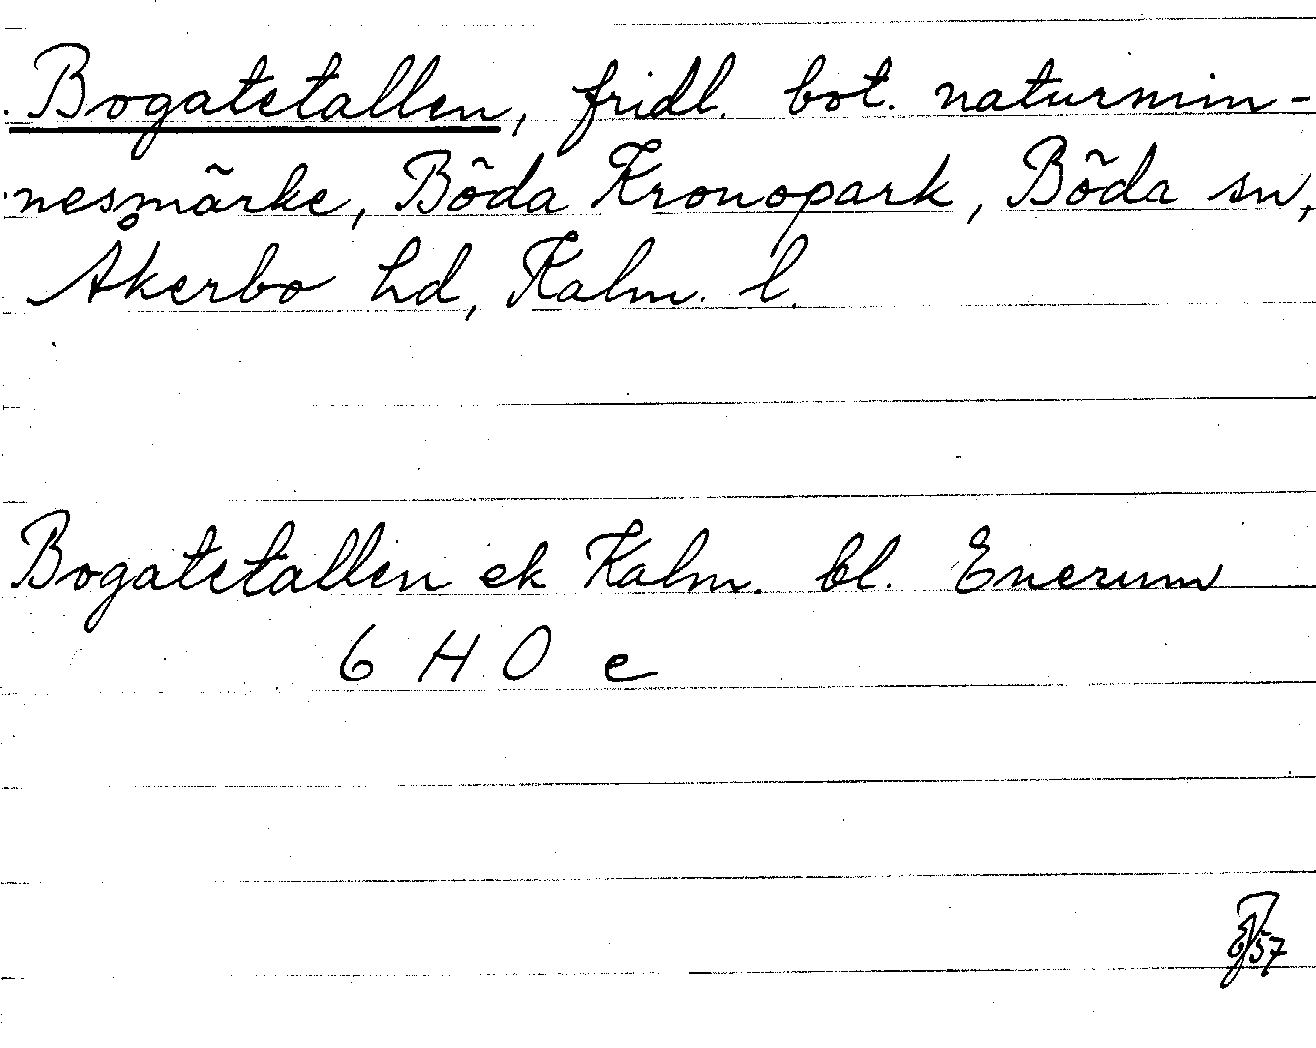 Bogatetallen, fridl. bot. naturmin-
nesmärke, Böda Kronopark, Böda sn,
Åkerbo hd, Kalm. l.
Bogatetallen ek Kalm. bl. Enerum
6 H 0 e
57